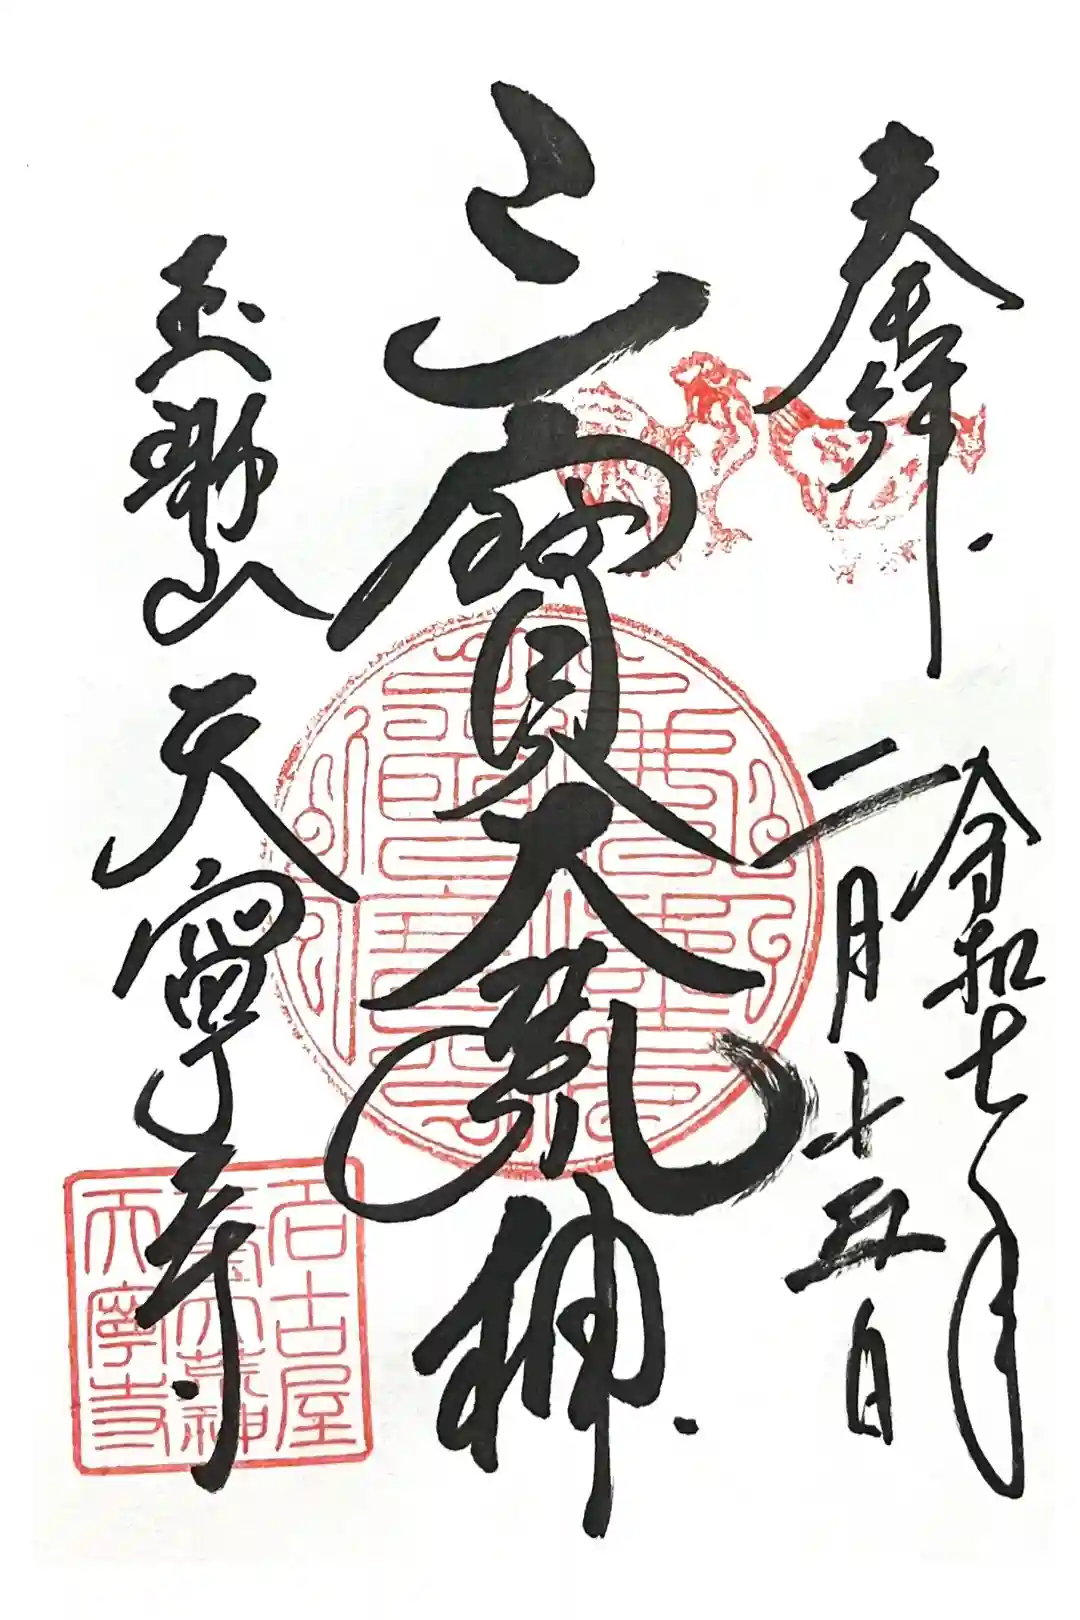 奉拝
令和七年
二月十五日
三寳大荒神
玉龍山 天寧寺
名古屋
三寳大荒神
天寧寺